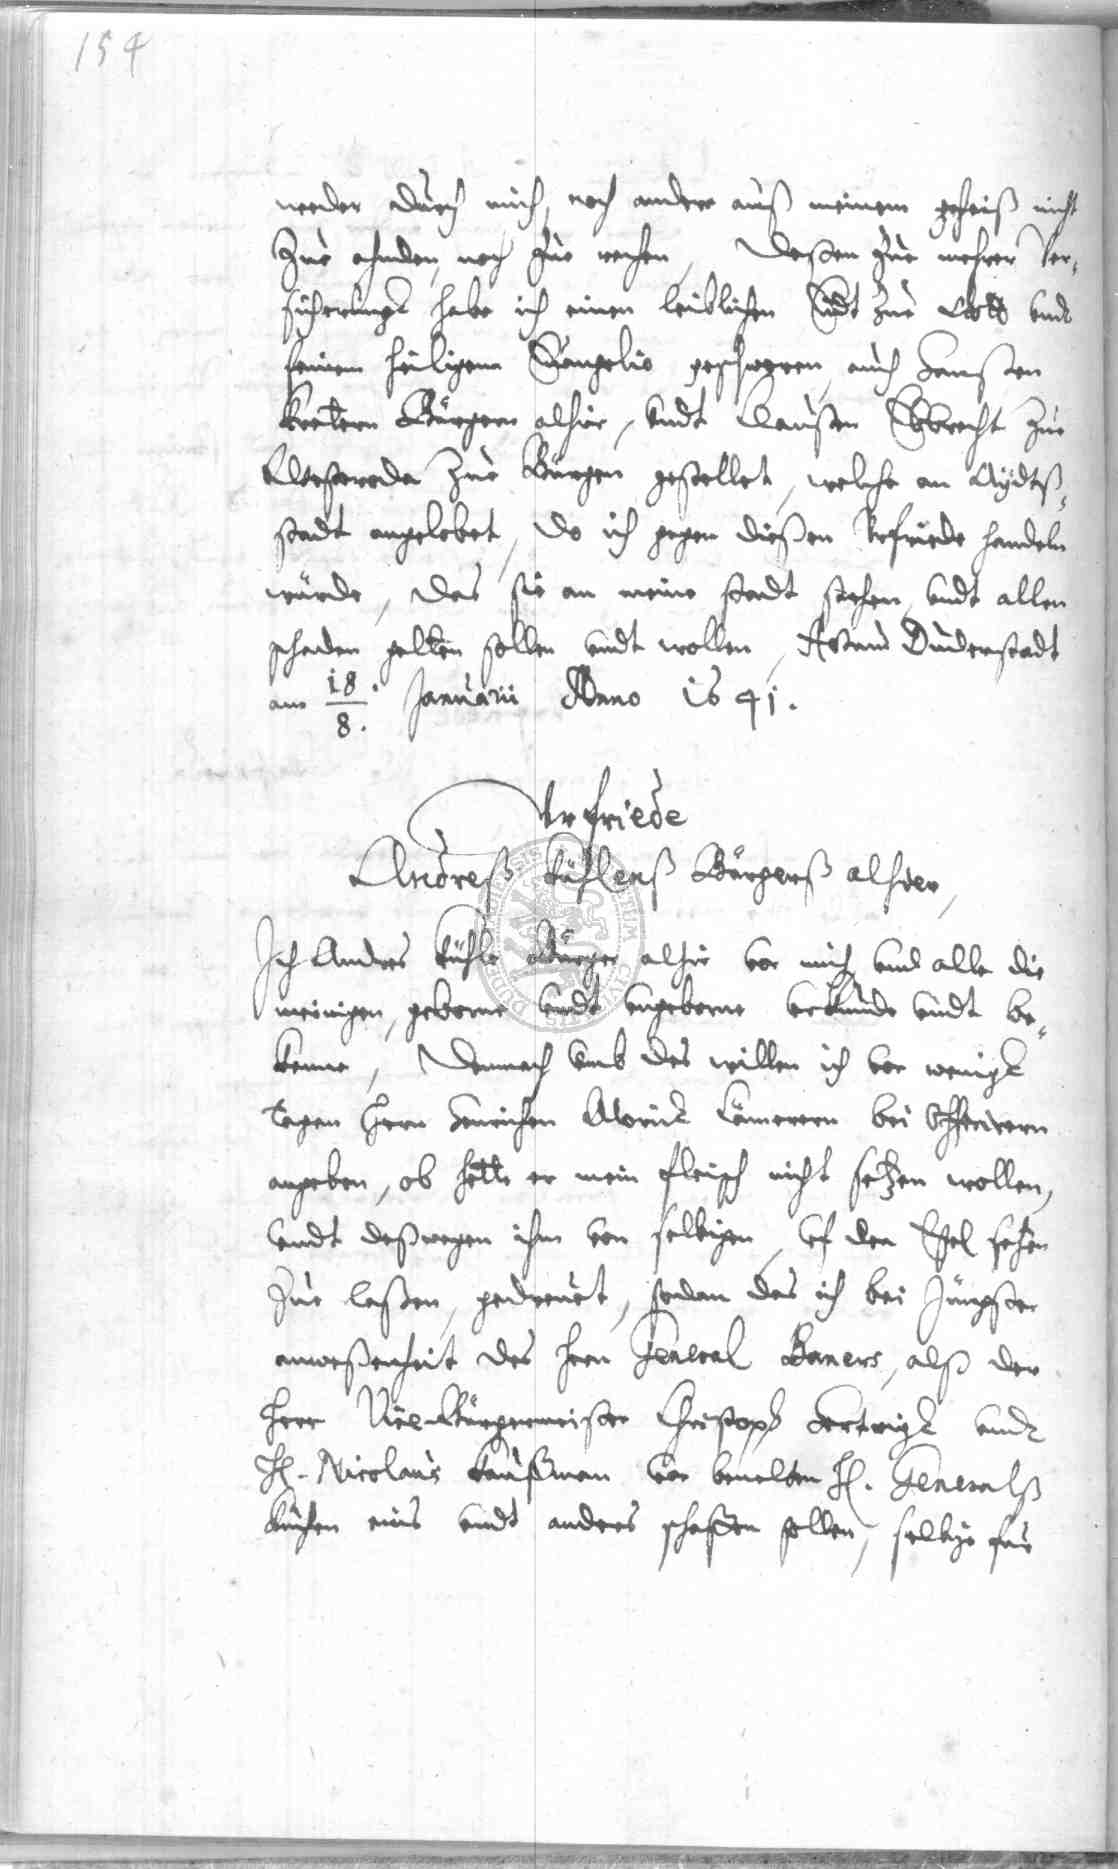 154
weder durch mich, noch andere auß meinem geheiß nicht
Zue ahnden, noch zue rechen, Deßen zue mehrer Ver-
sicherung habe ich einen leiblichen Eidt zue Gott undt
seinem heiligem Euangelio geschworen, auch Hanßen
Bürgern alhir, undt Claußen Ebbrecht zue
zue Bürgen gestellet, welche an Aydtß-
stadt angelobet, Do ich gegen dießen Vrfriede handeln
würde, Das sie an meine stadt stehen, undt allen
schaden gelten sollen undt wollen, Actum Duderstadt
am 18/8. Januarii Anno 1641.
Urfriede
Andreß Kühlenß Bürgerß alhier,
Ich Andres Kühle Bürger alhir vor mich und alle die
meinigen, geborne undt ungeborne urkunde undt be-
kenne, Demnach umb des willen ich vor wenig
tagen Herrn Henrichen Cämerern bei Officirern
angeben, ob hette er mein fleisch nicht setzen wollen,
undt deßwegen ihm von selbigen, uf den Esel setzen
Zue laßen, gedreuet, sodan das ich bei Jüngster
anweßenheit des Hern General Baners, alß der
Herr Bürgermeister Christoph Hertwig undt
H. Nicolaus Kauffman vor benelten H. Generalß
Küchen eins undt anders schaffen sollen, selbige